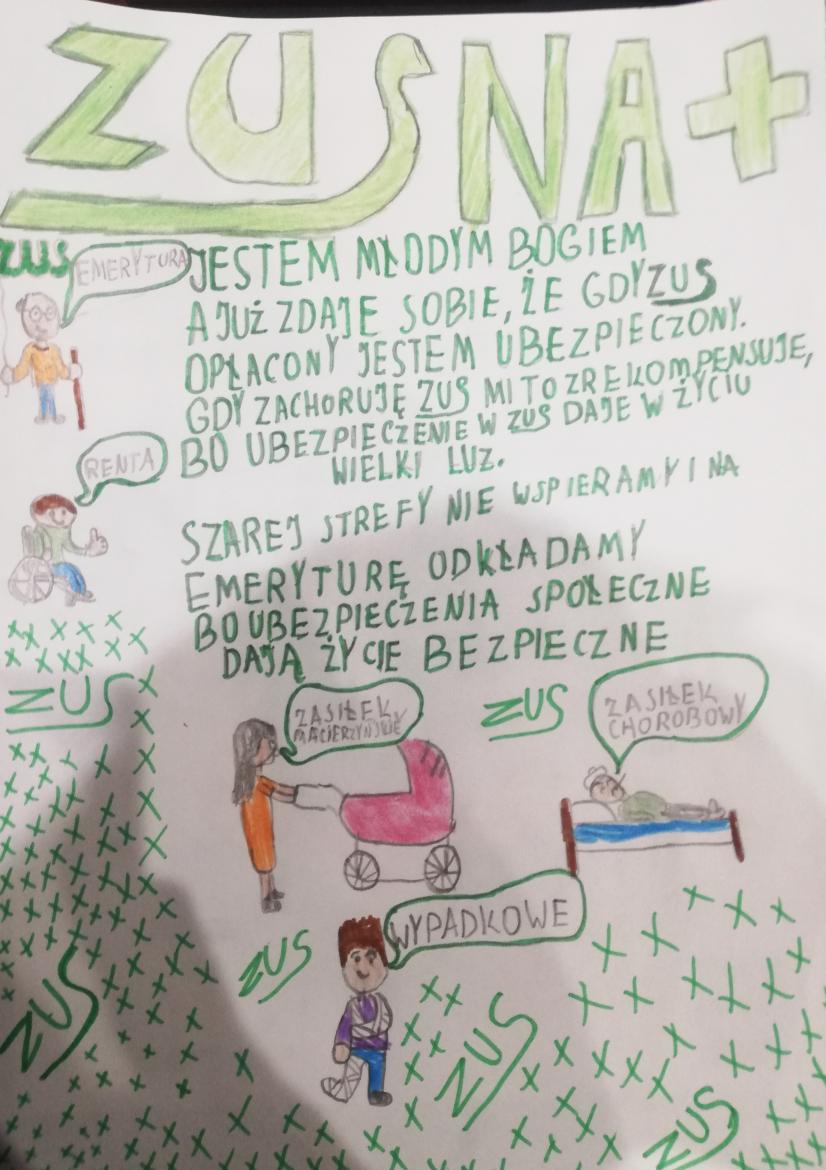 ZUS NA+
ZUS
EMERYTURA
JESTEM MŁODYM BOGIEM
A JUŻ ZDAJE SOBIE, ŻE GDY ZUS
OPŁACONY JESTEM UBEZPIECZONY.
GDY ZACHORUJĘ ZUS MI TO ZREKOMPENSUJE,
BO UBEZPIECZENIE W ZUS DAJE W ŻYCIU
WIELKI LUZ.
RENTA
SZAREJ STREFY NIE WSPIERAMY I NA
EMERYTURĘ ODKŁADAMY
BO UBEZPIECZENIA SPOŁECZNE
DAJĄ ŻYCIE BEZPIECZNE
ZUS
ZASIŁEK
MACIERZYŃSKIE
ZUS
ZASIŁEK
CHOROBOWY
WYPADKOWE
ZUS
ZUS
ZUS
ZUS